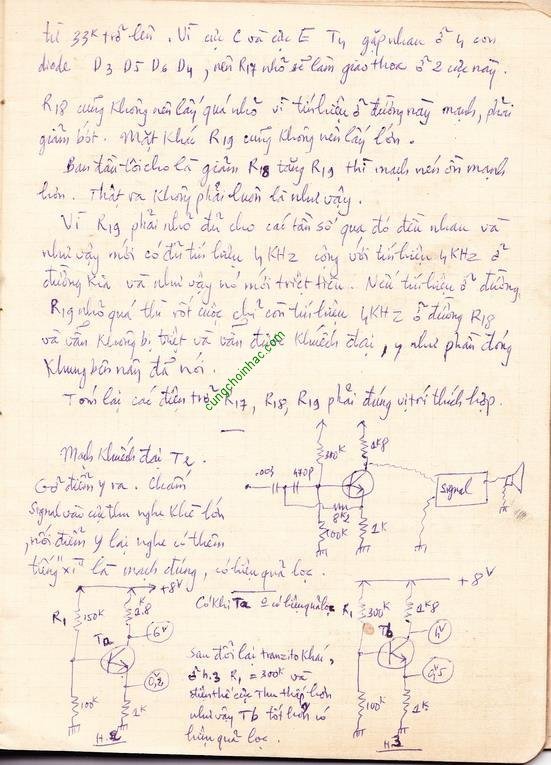 từ 33K trở lên. Vì cực C và cực E T4 gặp nhau ở 4 con
diode D3 D5 D6 D4, nên R17 nhỏ sẽ làm giao thoa ở 2 cực này.
R18 cũng không nên lấy quá nhỏ vì tín hiệu ở đường này mạnh, phải
giảm bớt. Mặt khác R19 cũng không nên lấy lớn.
Ban đầu tôi cho là giảm R18 tăng R19 thì mạch nén ồn mạnh
hơn. Thật ra không phải luôn là như vậy.
Vì R19 phải nhỏ đủ cho các tần số qua đó đều nhau và
như vậy mới có đủ tín hiệu 4KHz cộng với tín hiệu 4KHz ở
đường kia và như vậy nó mới triệt tiêu. Nếu tín hiệu ở đường
R19 nhỏ quá thì rốt cuộc chỉ còn tín hiệu 4KHz ở đường R18
và vẫn không bị triệt và vẫn được khuếch đại, y như phần đóng
khung bên này đã nói.
Tóm lại các điện trở R17, R18, R19 phải đúng vị trí thích hợp.
cungchoinhac.com
Mạch khuếch đại T2.
Gỡ điểm y ra. Chấm
signal vào cực thu nghe khẽ lớn
, nối điểm y lại nghe có thêm
tiếng "xì" là mạch đúng, có hiệu quả lọc.
.003 470P 300K 1K8
8K2 100K 1K
Signal
+8V
R1 150K 1K8
Ta 6V
0,3
100K 1K
H.2
Có khi Ta o có hiệu quả lọc
sau đổi lại tranzito khác,
ở h.3 R1 = 300K và
điện thế cực thu thấp hơn
như vậy Tb tốt hơn có
hiệu quả lọc.
+8V
R1 300K 1K8
Tb 4V
0,5
100K 1K
H.3